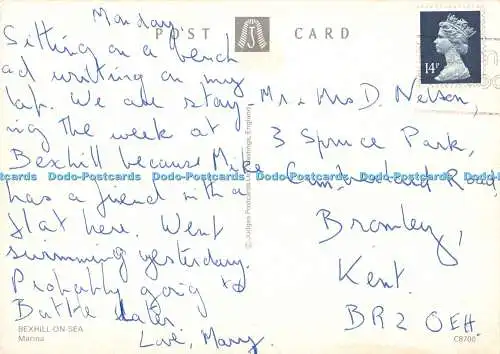 Monday.
Sitting on a bench
and writing on my
lap. We are stay
ing the week at
Bexhill because Mike
has a friend with a
flat here. Went
swimming yesterday.
Probably going to
Battle later.
Love, Mary.
POST CARD
14P
Mr & Mrs D. Nelson,
3 Spruce Park,
Cumberland Road,
Bromley,
Kent.
BR2 0EH.
BEXHILL-ON-SEA
Marina
C8700
© Judges Postcards Ltd, Hastings, England
Dodo-Postcards Dodo-Postcards Dodo-Postcards Dodo-Postcards Dodo-Postcards Dodo-Postcards